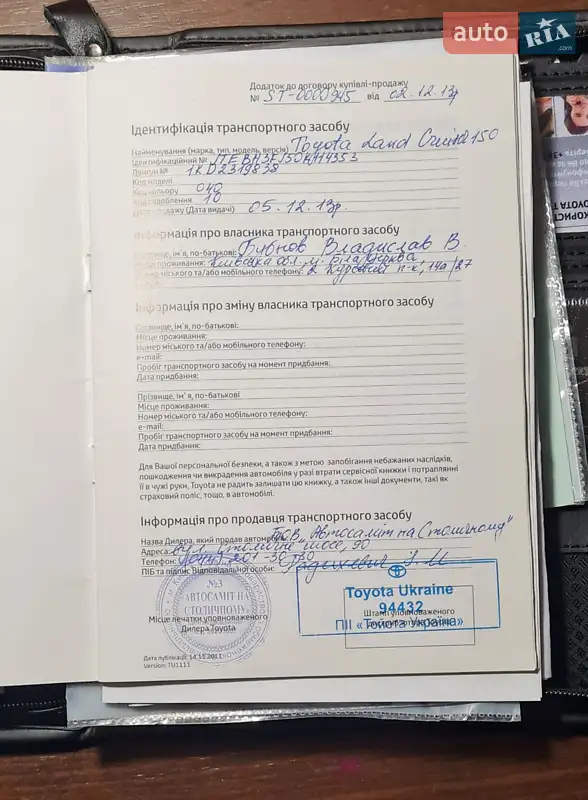 auto RIA
.com
Додаток до договору купівлі-продажу
№ ST-0000945 від 02.12.13р
Ідентифікація транспортного засобу
Найменування (марка, тип, модель, версія) Toyota Land Cruiser 150
Ідентифікаційний №
Двигун № 1KD2319838
Код моделі
Код кольору 040
Код оздоблення 10
Дата продажу (Дата видачі) 05.12.13р.
Інформація про власника транспортного засобу
Прізвище, ім`я, по-батькові: Бубнов Владислав В.
Місце проживання: Київська обл. м. Біла Церква
Номер міського та/або мобільного телефону: 14а/27
Інформація про зміну власника транспортного засобу
Прізвище, ім`я, по-батькові:
Місце проживання:
Номер міського та/або мобільного телефону:
e-mail:
Пробіг транспортного засобу на момент придбання:
Дата придбання:
Прізвище, ім`я, по-батькові
Місце проживання:
Номер міського та/або мобільного телефону:
e-mail:
Пробіг транспортного засобу на момент придбання:
Дата придбання:
Для Вашої персональної безпеки, а також з метою запобігання небажаних наслідків,
пошкодження чи викрадення автомобіля у разі втрати сервісної книжки і потраплянні
її в чужі руки, Toyota не радить залишати цю книжку, а також інші документи, такі як
страховий поліс, тощо, в автомобілі.
Інформація про продавця транспортного засобу
Назва Дилера, який продав автомобіль: ТОВ „Автосаміт на Столичному"
Адреса: вул. Столичне шосе, 90
Телефон:
ПІБ та підпис Відповідальної особи:
№3
АВТОСАМІТ НА
СТОЛИЧНОМУ
Місце печатки уповноваженого
Дилера Toyota
Toyota Ukraine
94432
ПІІ «Тойота Україна»
Штамп уповноваженого
Дата публікації: 14.11.2011
Version: TU1111